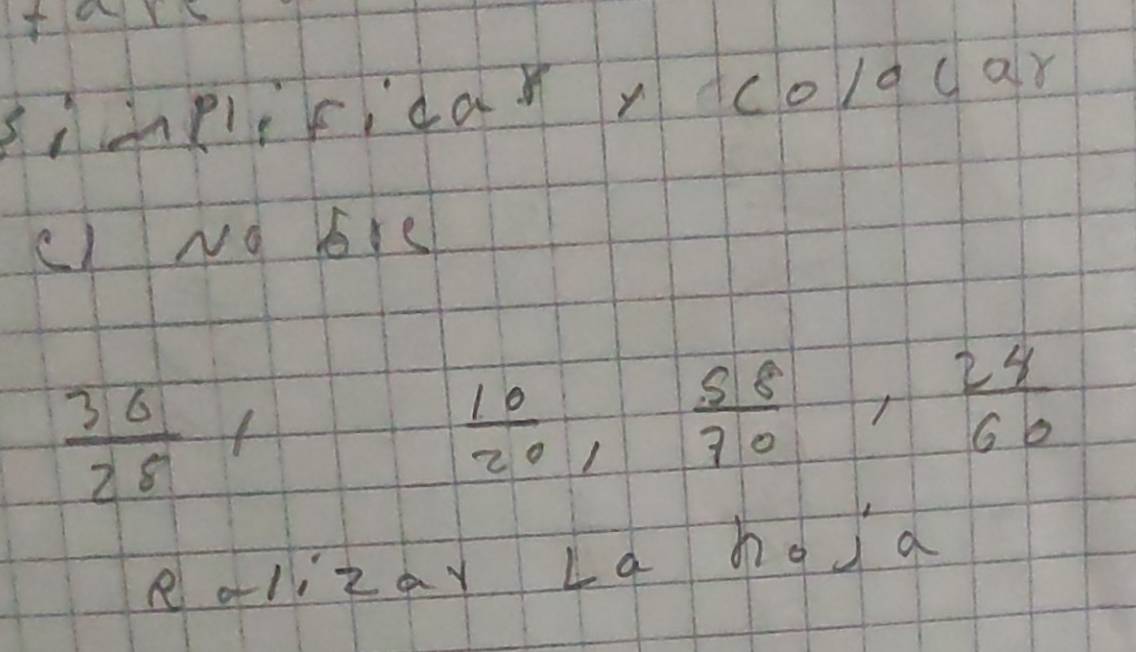 tare
Simplificar y colocar
el Nobre
36/28, 10/20, 58/70, 24/60
Ralizar La hoja